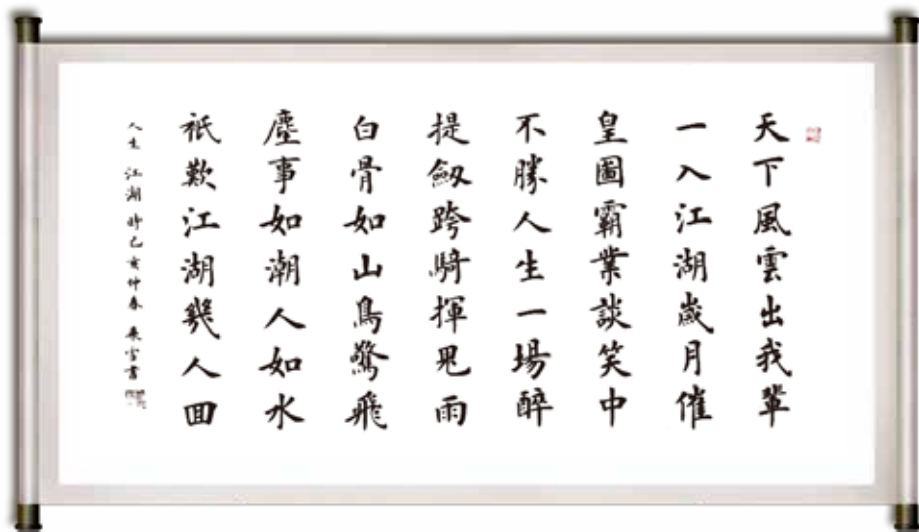 天下風雲出我輩
一入江湖歲月催
皇圖霸業談笑中
不勝人生一場醉
提劔跨騎揮鬼雨
白骨如山鳥驚飛
塵事如潮人如水
祇歎江湖幾人回
人生 江湖 時己亥仲春 書